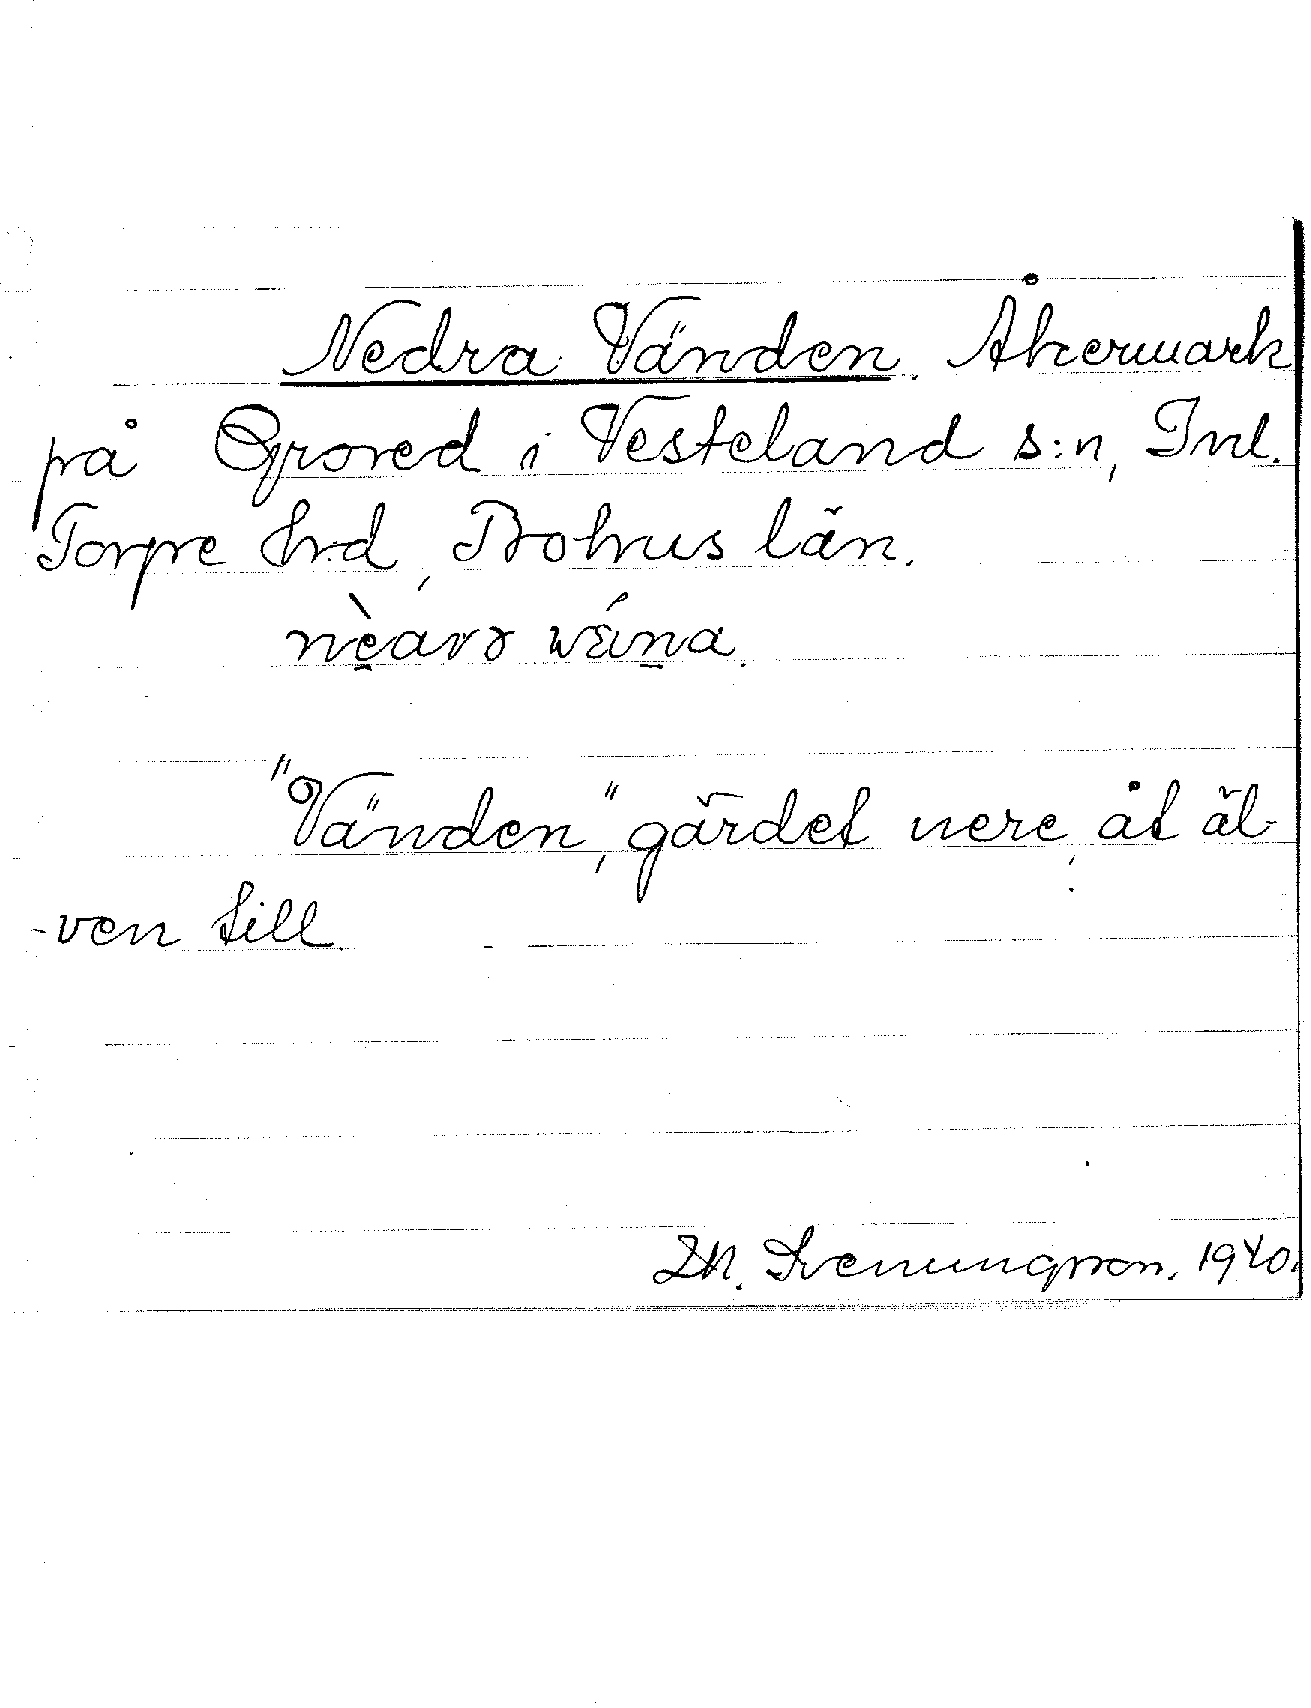 Nedra Vänden. Åkermark
på Grored i Vesteland s:n, Inl.
Torpe hrd, Bohus län.
nèavɘ wɛ́ina.
"Vänden", gärdet nere åt äl-
-ven till.
Svenungsson. 1940.